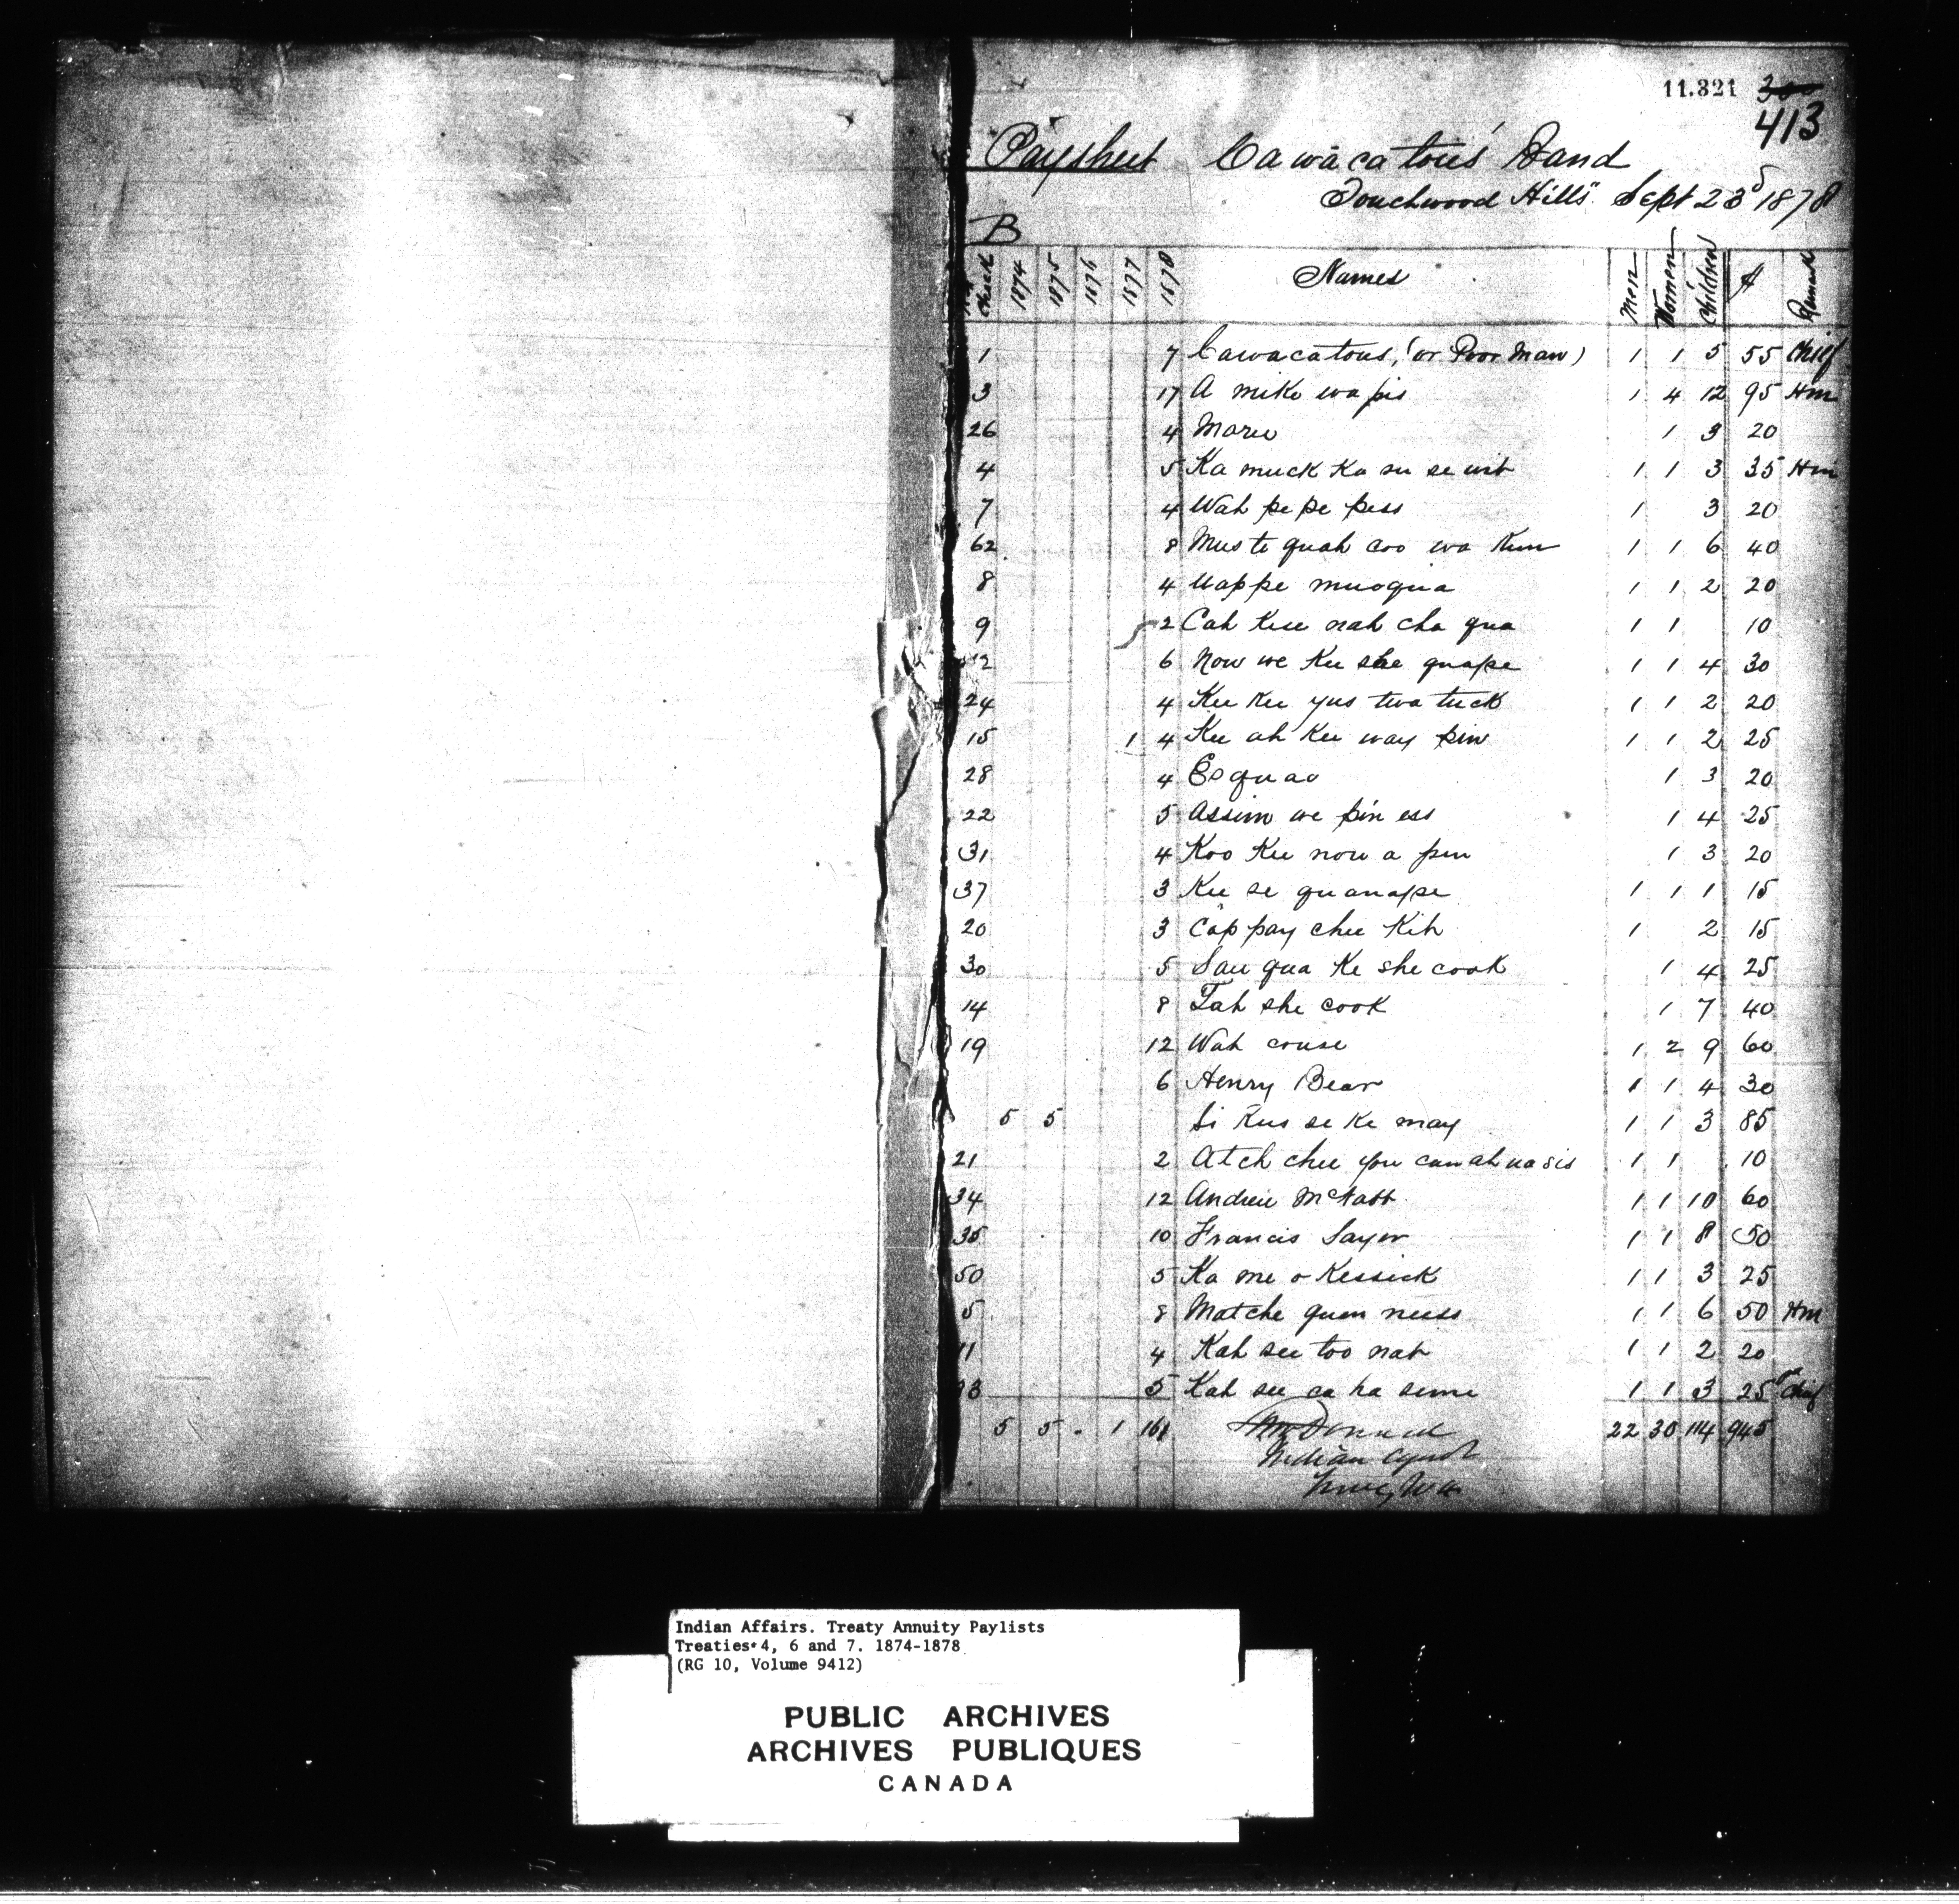 11.321 300
413
Paysheet Cawacatous' Band
Touchwood Hills Sept 23d 1878
B
No. Check 1874 1875 1876 1877 1878 Names Men Women Children $ Remark
1 7 Cawacatous, (or Poor Man) 1 1 5 55 Chief
3 17 A mike wa pis 1 4 12 95 Hm
26 4 Marie 1 3 20
4 5 Ka muck Ka su se wit 1 1 3 35 Hm
7 4 Wah pe pe piss 1 3 20
62 8 Mus te quah coo wa Kun 1 1 6 40
8 4 Wappe musqua 1 1 2 20
9 2 Cah Kee nah cha qua 1 1 10
12 6 Now we Kee she quape 1 1 4 30
24 4 Kee Kee yus twa tuck 1 1 2 20
15 1 4 Kee ah Kee way pin 1 1 2 25
28 4 Esquao 1 3 20
22 5 Assin we pin ess 1 4 25
31 4 Koo Kee now a pin 1 3 20
37 3 Kee se quanape 1 1 1 15
20 3 Cap pay chee Kih 1 2 15
30 5 Sau qua Ke she cook 1 4 25
14 8 Tah she cook 1 7 40
19 12 Wah couse 1 2 9 60
6 Henry Bear 1 1 4 30
5 5 Si Kus se Ke may 1 1 3 85
21 2 Atch chee you can ah na sis 1 1 10
34 12 Andrew McNabb 1 1 10 60
35 10 Francis Sayer 1 1 8 50
50 5 Ka me o Kessick 1 1 3 25
5 8 Matche quen neess 1 1 6 50 Hm
11 4 Kah see too nat 1 1 2 20
13 5 Kah see ca ha seme 1 1 3 25 Chief
5 5 . 1 161 McDonald 22 30 114 945
Indian Agent
Indian Affairs. Treaty Annuity Paylists
Treaties 4, 6 and 7. 1874-1878
(RG 10, Volume 9412)
PUBLIC ARCHIVES
ARCHIVES PUBLIQUES
CANADA